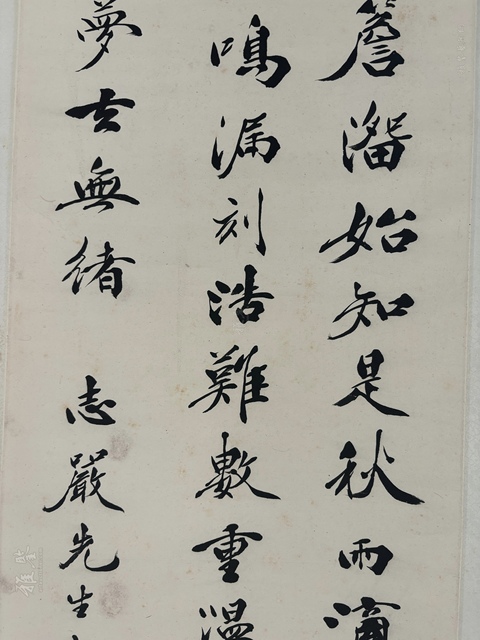 簷溜始知是秋雨滴
鳴漏刻浩難數重温
夢去無緒 志嚴先生